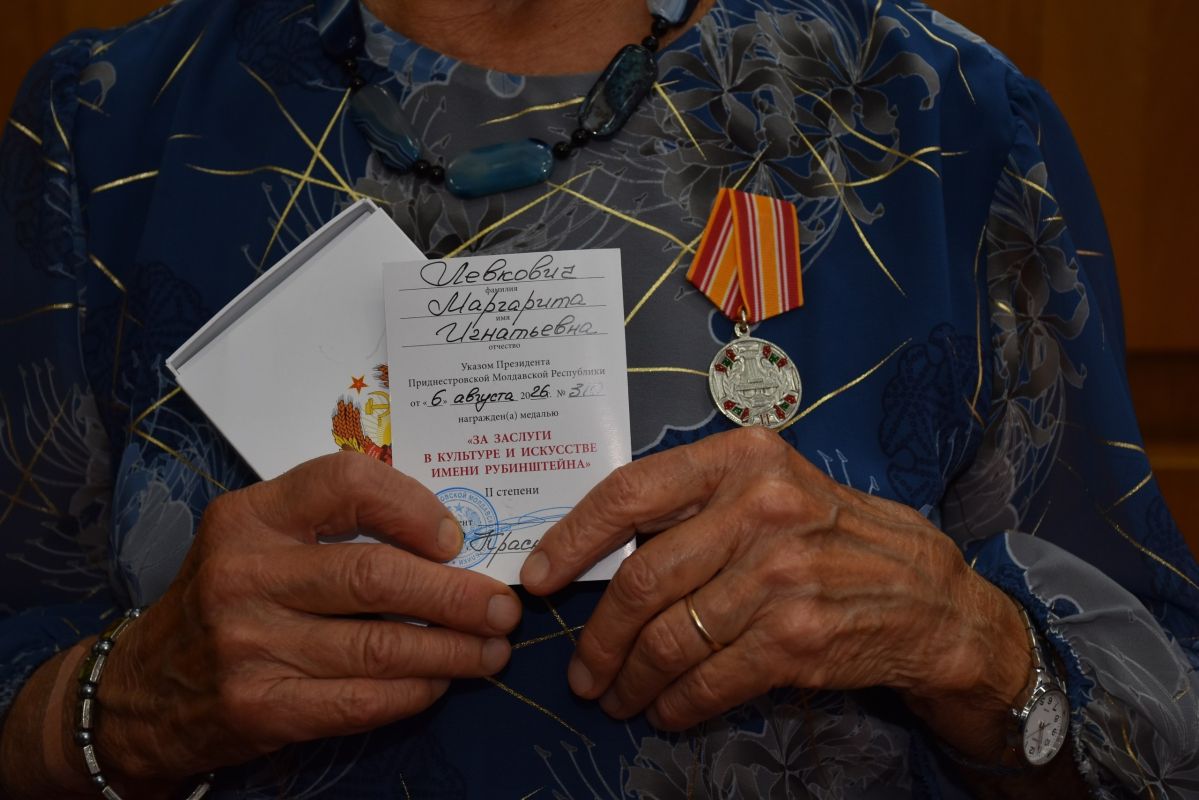 Левкович
фамилия
Маргарита
имя
Игнатьевна
отчество
Указом Президента
Приднестровской Молдавской Республики
от «6» августа 2026. №
награждён(а) медалью
«ЗА ЗАСЛУГИ
В КУЛЬТУРЕ И ИСКУССТВЕ
ИМЕНИ РУБИНШТЕЙНА»
II степени